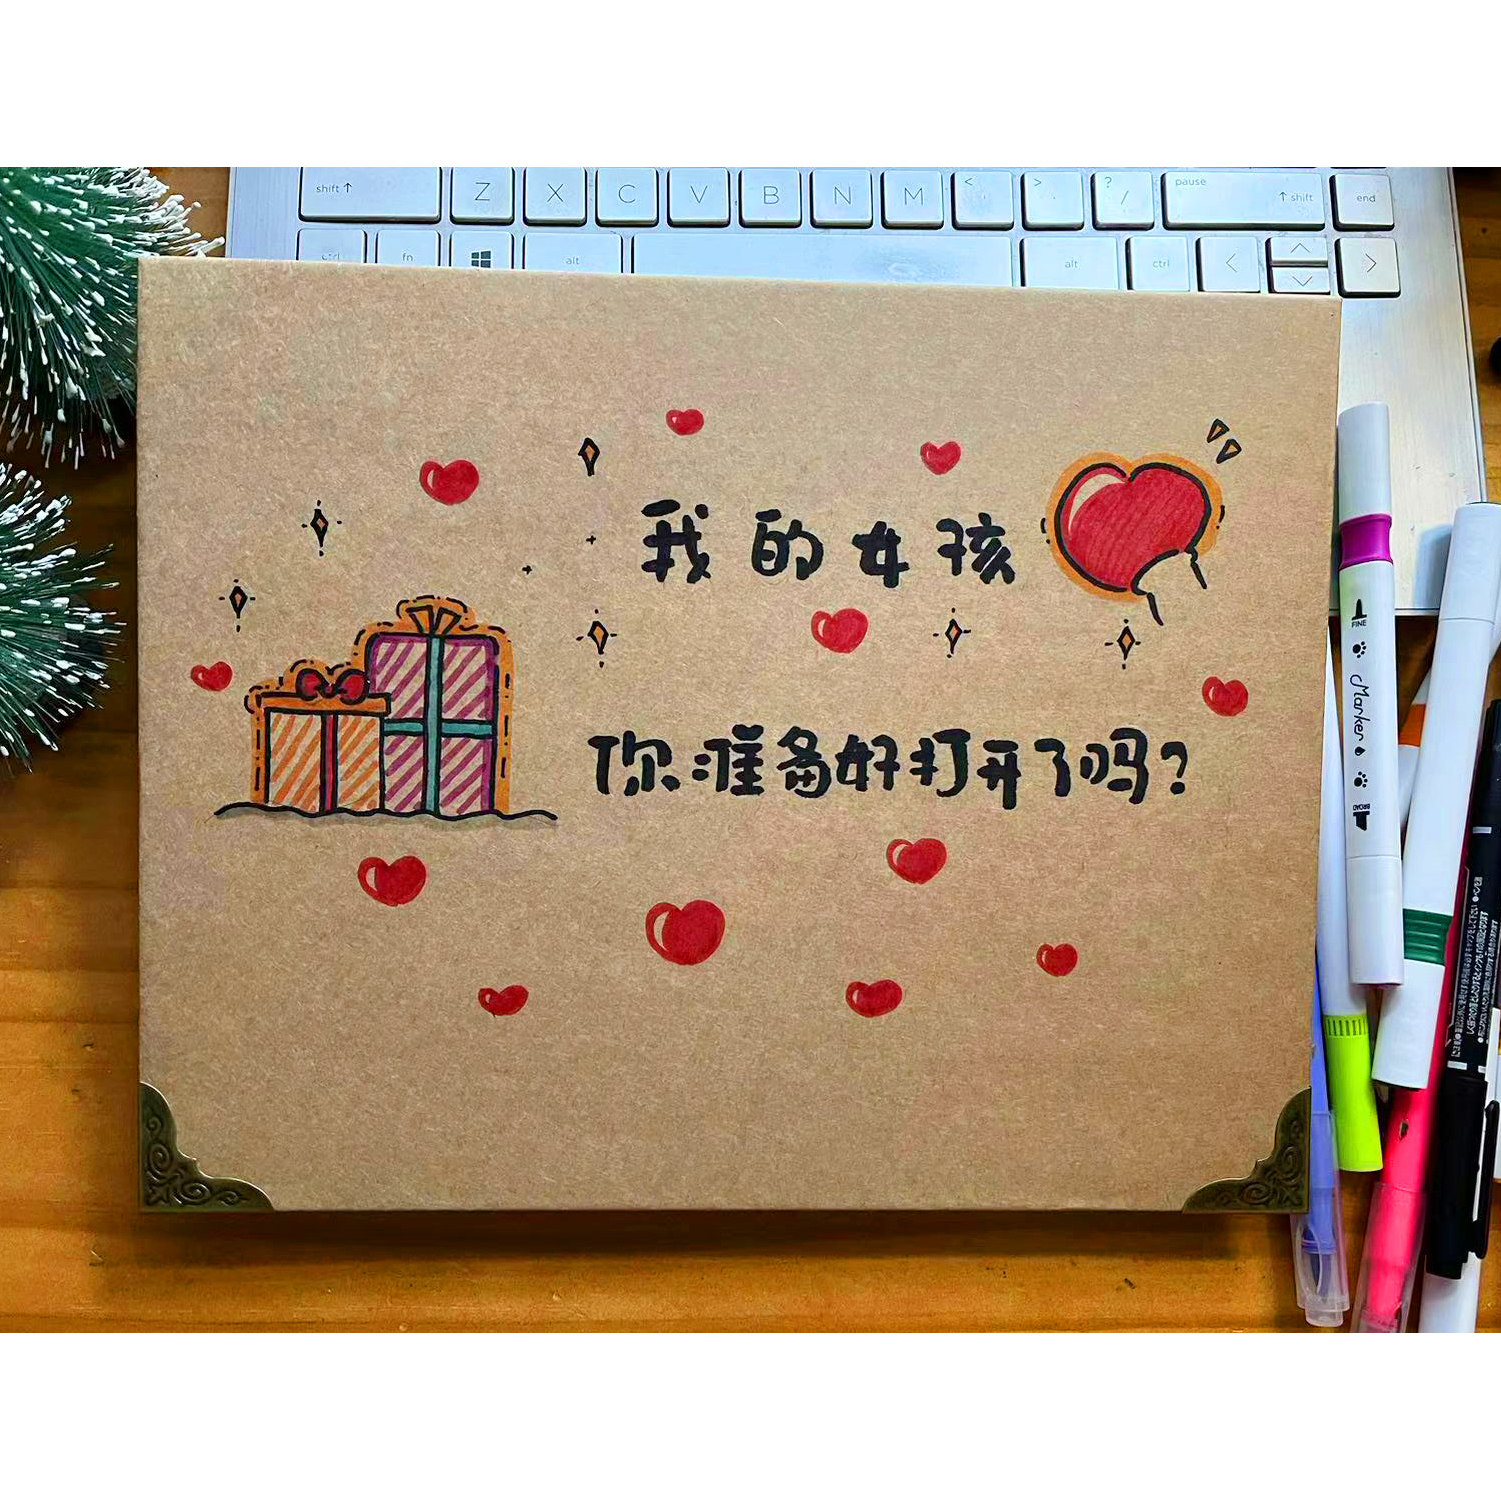 shift ↑ Z X C V B N M < > ? / pause ↑ shift end
ctrl fn alt alt ctrl < >
我的女孩
你准备好打开了吗?
FINE
Marker
BROAD